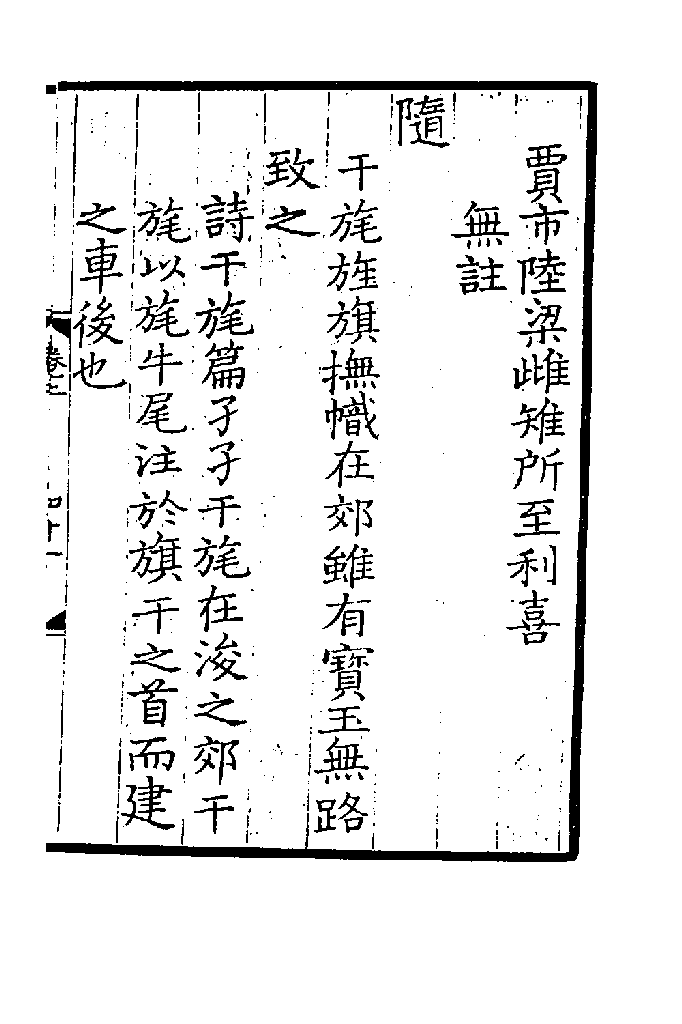 賈市陸梁雌雉所至利喜
無註
隨
干旄旌旗撫幟在郊雖有寶玉無路
致之
詩干旄篇孑孑干旄在浚之郊干
旄以旄牛尾注於旗干之首而建
之車後也